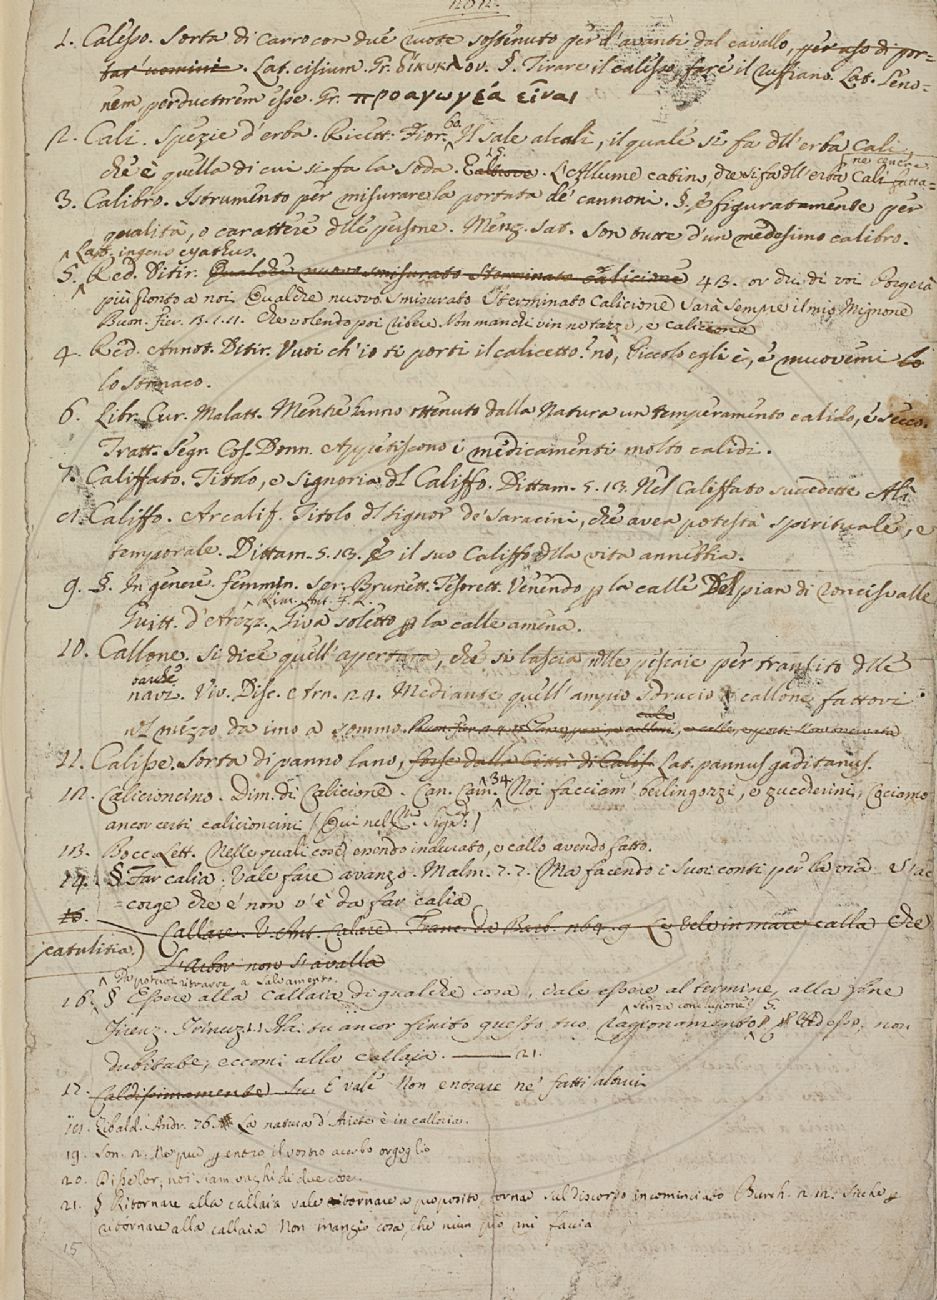 1. Calesso. Sorta di carro con due ruote sostenuto per d'avanti dal cavallo, per uso di por-
tar uomini. Lat. cisium Gr. δίκυκλον. §. Tirare il calesso, fare il ruffiano. Lat. Leno-
nem perductorem esse. Gr. προαγωγέα είναι
2. Cali. Spezie d'erba. Ricett. Fior. 60. Il sale alcali, il quale si fa dell'erba Cali,
che è quella di cui si fa la soda. E 15. L'Allume catino, che si fa dell'erba Cali fatta-
ne cenere
3. Calibro. Istrumento per misurare la portata de' cannoni. §. è figuratamente per
qualità, o carattere delle persone. Menz. Sat. Son tutte d'un medesimo calibro.
Lat. ingens cyathus.
5. Red. Ditir. Qualche nuovo smisurato Sterminato calicione 43. or che di voi Porgerà
più pronto a noi Qualche nuovo smisurato Sterminato calicione Sarà sempre il mio Mignone
Buon. Fier. 3. 1. 11. Che volendo poi bere Non manchi vin ne tazze, e calicione
4. Red. Annot. Ditir. Vuoi ch'io ti porti il calicetto? nò, Piccolo egli è, e muovemi lo
lo stomaco.
6. Libr. Cur. Malatt. Mentre hanno ottenuto dalla Natura un temperamento calido, e secco.
Tratt. Segr. Cos. Donn. Appetiscono i medicamenti molto calidi.
7. Califfato. Titolo, e Signoria del Califfo. Dittam. 5. 13. Nel Califfato succedette Alà
8. Califfo. Arcalif. Titolo del Signor de' Saracini, che avea potestà spirituale, e
temporale. Dittam. 5. 13. è il suo Califfo della vita annesta.
9. §. In genere femmin. Ser. Brunett. Tesorett. Venendo p la calle Del pian di roncisvalle
Rim. Ant. F. R.
Guitt. d'Arezz. Giva soletto p la calle amena.
10. Callone. Si dice quell'apertura, che si lascia nelle pescaie per transito delle
barche
navi. Viv. Disc. Arn. 29. Mediante quell'ampio sdrucio, callone fattovi
nel mezzo da imo a sommo.
11. Calisse. Sorta di panno lano, forse dalla Città di Calis. Lat. pannus gaditanus.
12. Calicioncino. Dim. di Calicione. Can. Carn. 34. Noi facciam berlingozzi, e zuccherini, Facciamo
ancor certi calicioncini (Qui nel No. Signifo.)
13. Bocc. Lett. Nelle quali cose essendo indurato, e callo avendo fatto.
14. § Far calia. Vale fare avanzo. Malm. 7. 7. Ma facendo i suoi conti per la via S'ac-
=corge che e' non v'è da far calia
16. Callare. V. Ant. Calare. Franc. da Barb. 264. 9 calla che
catulitia.
L'arbor non si avalla
Da poter ritrovar a salvamento.
16. § Essere alla callaia di qualche cosa, vale essere al termine, alla fine
senza conclusione? S.
Firenz. Trinuz. Ha tu ancor finito questo tuo ragionamento Adesso, non
dubitare, eccomi alla callaia. ——— 21.
17. Caldissimamente E vale Non entrare ne' fatti altrui
18. Libald. Andr. 76. La natura d'Ariete è in callaia.
19. Son. 2. Ne può p entro il vostro acerbo orgoglio
20. Disselor, noi siam vaghi di due cose.
21. § Ritornare alla callaia vale ritornare a proposito, tornar sul discorso incominciato Burch. 2. 12.
ritornare alla callaia Non mangio cosa, che niun pro mi faccia
15